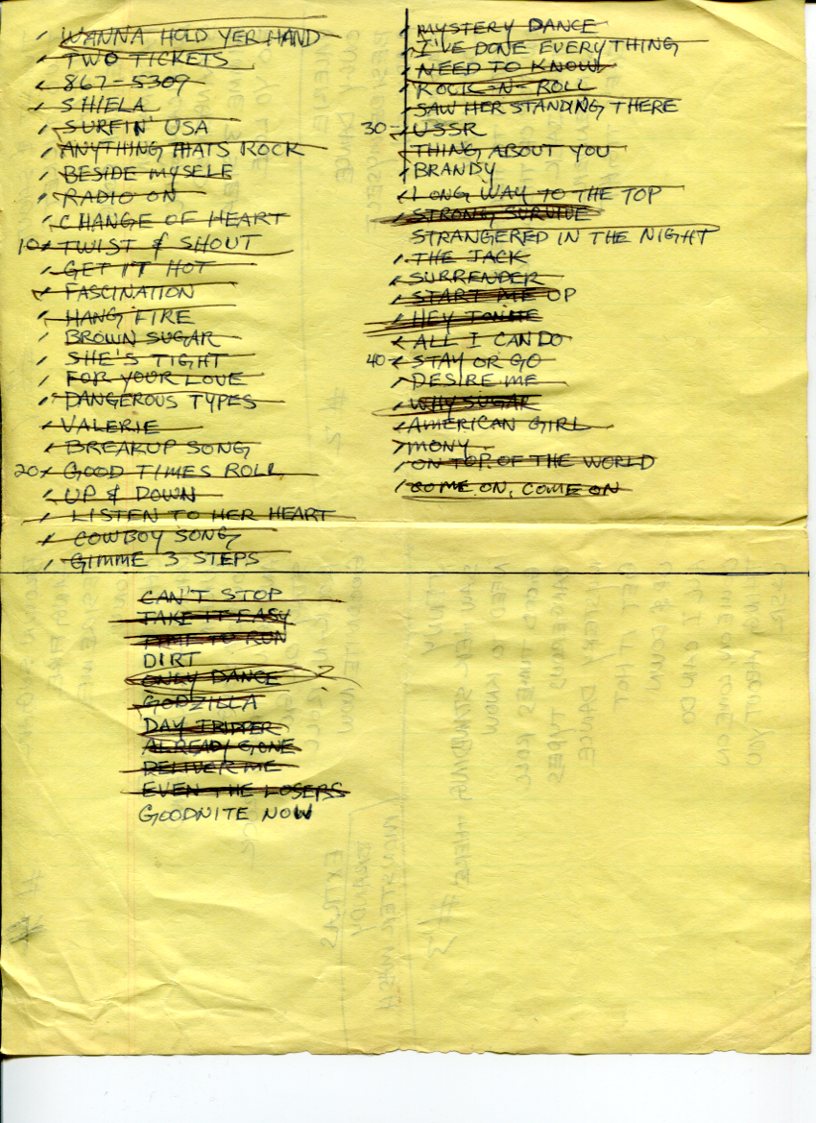 WANNA HOLD YER HAND
TWO TICKETS
867-5309
SHIELA
SURFIN' USA
ANYTHING THATS ROCK
BESIDE MYSELF
RADIO ON
CHANGE OF HEART
10 TWIST & SHOUT
GET IT HOT
FASCINATION
HANG FIRE
BROWN SUGAR
SHE'S TIGHT
FOR YOUR LOVE
DANGEROUS TYPES
VALERIE
BREAKUP SONG
20 GOOD TIMES ROLL
UP & DOWN
LISTEN TO HER HEART
COWBOY SONG
GIMME 3 STEPS
MYSTERY DANCE
I'VE DONE EVERYTHING
NEED TO KNOW
ROCK-N-ROLL
SAW HER STANDING THERE
30 USSR
THING ABOUT YOU
BRANDY
LONG WAY TO THE TOP
STRONG SURVIVE
STRANGERED IN THE NIGHT
THE JACK
SURRENDER
START ME UP
HEY TONITE
ALL I CAN DO
40 STAY OR GO
DESIRE ME
WHY SUGAR
AMERICAN GIRL
MONY
ON TOP OF THE WORLD
COME ON, COME ON
CAN'T STOP
TAKE IT EASY
TIME TO RUN
DIRT
ONLY DANCE
GODZILLA
DAY TRIPPER
ALREADY GONE
DELIVER ME
EVEN THE LOSERS
GOODNITE NOW